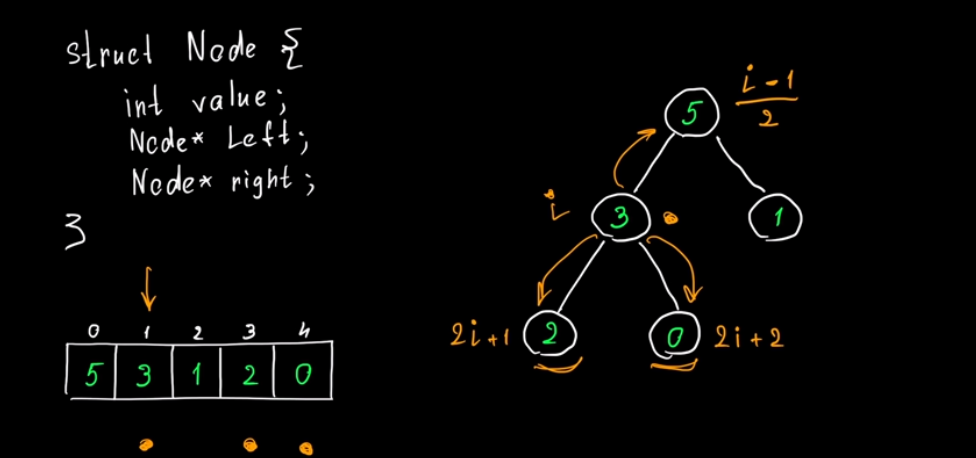 struct Node {
int value;
Node* Left;
Node* right;
}
0 1 2 3 4
5 3 1 2 0
i-1
2
5
i 3 1
2i+1 2 0 2i+2